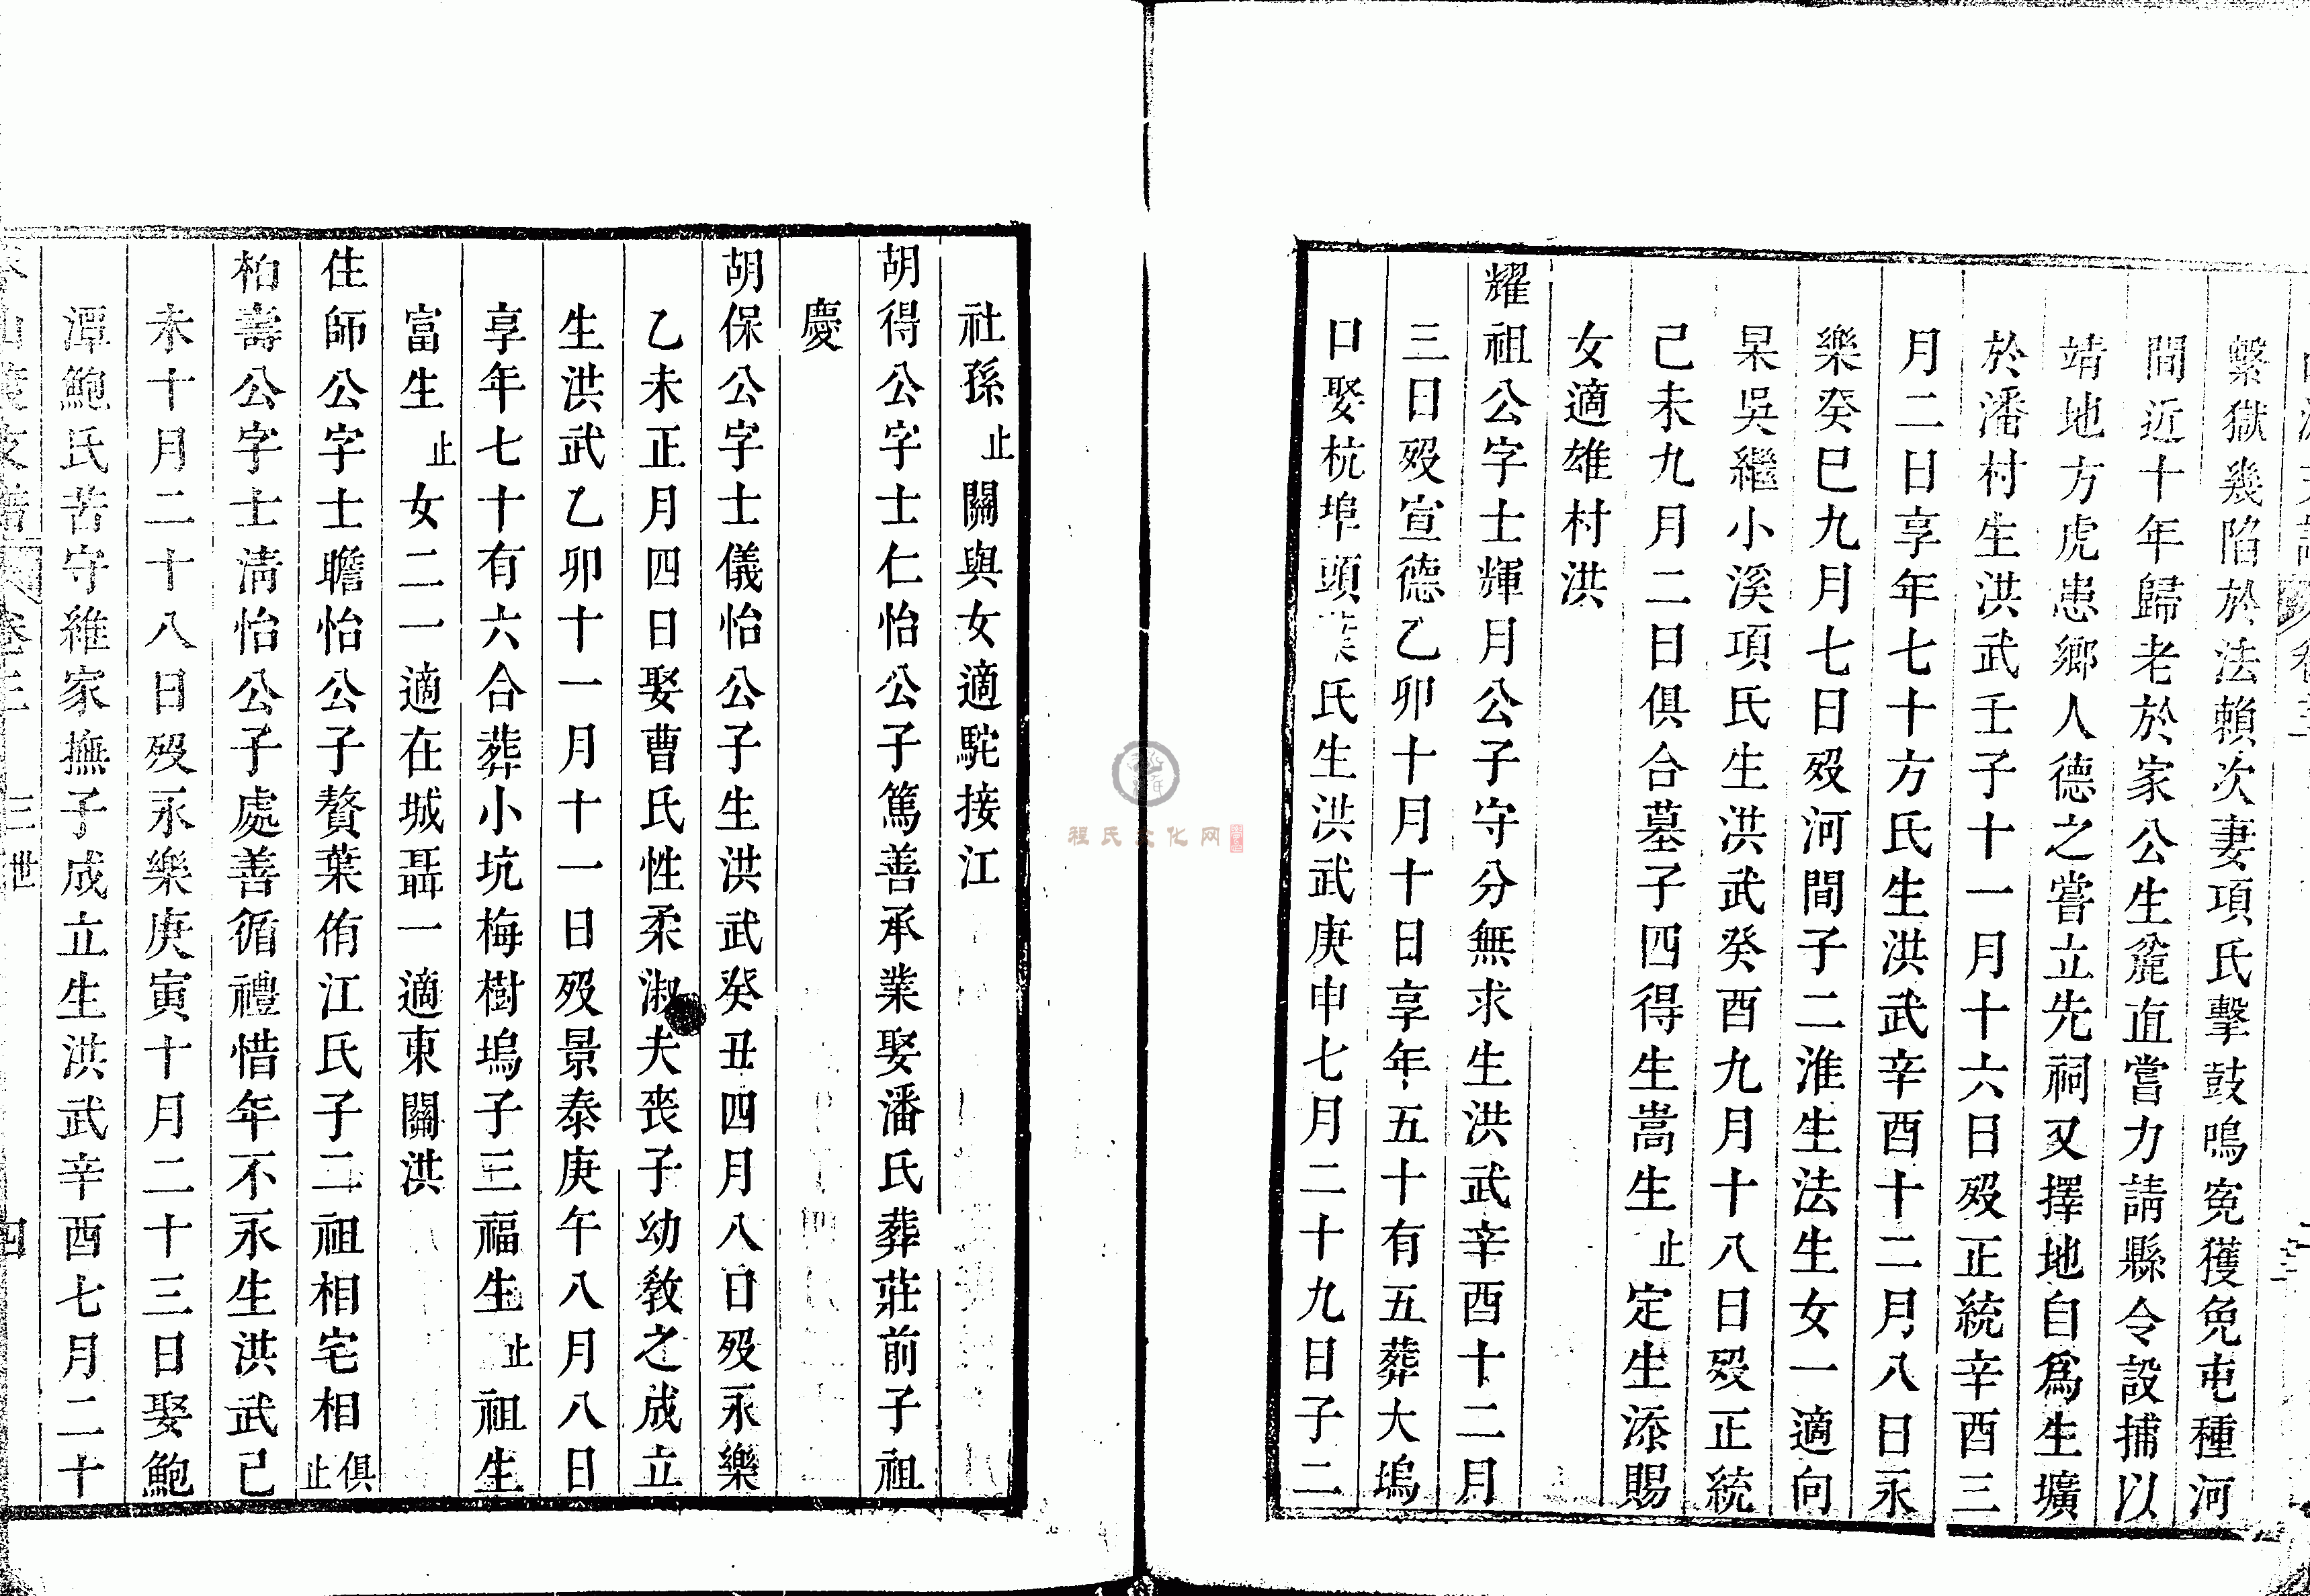 繫獄幾陷於法賴次妻項氏擊鼓鳴寃獲免屯種河
間近十年歸老於家公生麄直嘗力請縣令設捕以
靖地方虎患鄉人德之嘗立先祠又擇地自爲生壙
於潘村生洪武壬子十一月十六日歿正統辛酉三
月二日享年七十方氏生洪武辛酉十二月八日永
樂癸巳九月七日歿河間子二淮生法生女一適向
杲吳繼小溪項氏生洪武癸酉九月十八日歿正統
己未九月二日俱合墓子四得生嵩生止定生添賜
女適雄村洪
耀祖公字士輝月公子守分無求生洪武辛酉十二月
三日歿宣德乙卯十月十日享年五十有五葬大塢
口娶杭埠頭葉氏生洪武庚申七月二十九日子二
社孫止關與女適駝接江
胡得公字士仁怡公子篤善承業娶潘氏葬莊前子祖
慶
胡保公字士儀怡公子生洪武癸丑四月八日歿永樂
乙未正月四日娶曹氏性柔淑夫喪子幼教之成立
生洪武乙卯十一月十一日歿景泰庚午八月八日
享年七十有六合葬小坑梅樹塢子三福生止祖生
富生止女二一適在城聶一適東關洪
住師公字士瞻怡公子贅葉侑江氏子二祖相宅相俱止
柏壽公字士清怡公子處善循禮惜年不永生洪武己
未十月二十八日歿永樂庚寅十月二十三日娶鮑
潭鮑氏苦守維家撫子成立生洪武辛酉七月二十
卷三
三世
四
程氏文化网